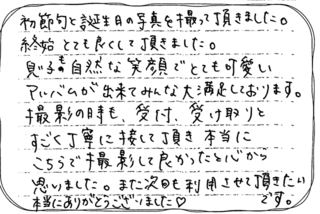 初節句と誕生日の写真を撮って頂きました。
終始とても良くして頂きました。
息子もの自然な笑顔でとても可愛い
アルバムが出来てみんな大満足しております。
撮影の時も、受付、受け取りと
すごく丁寧に接して頂き本当に
こちらで撮影して良かったと心から
思いました。また次回も利用させて頂きたいです。
本当にありがとうございました♡